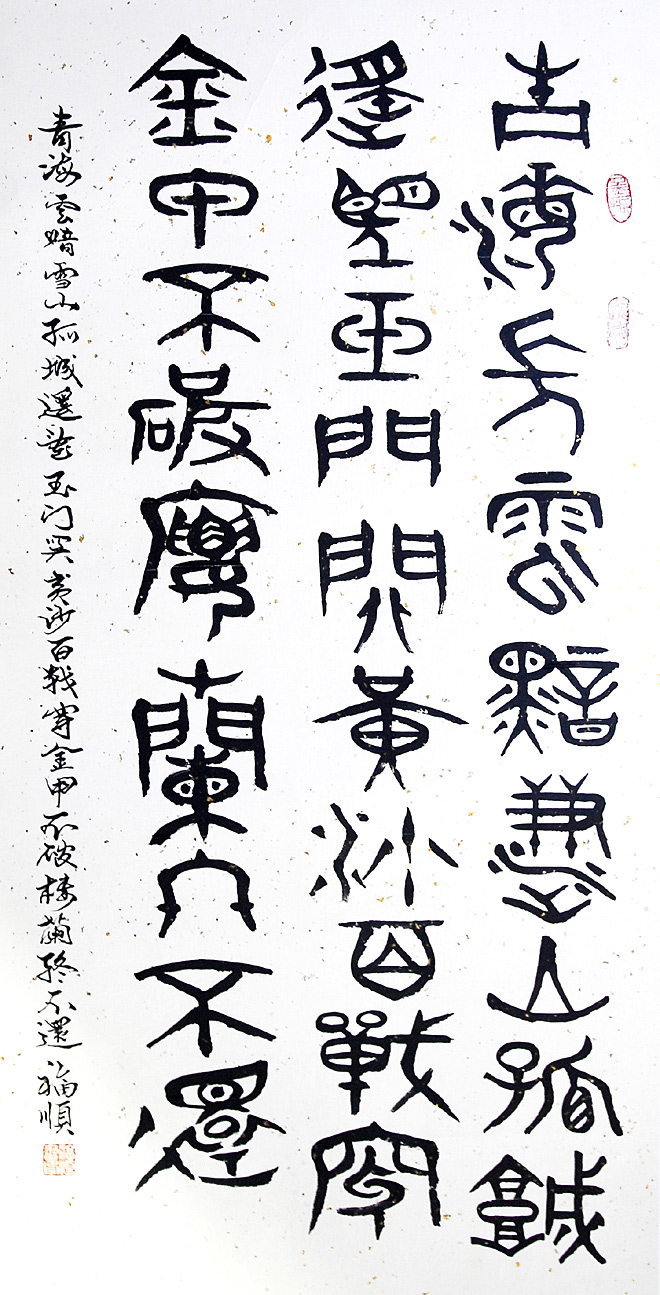 青海長雲黯雪山孤城
遥望玉門関黄沙百戰穿
金甲不破樓蘭終不還
青海雲暗雪山孤城遥望玉门関黄沙百戰穿金甲不破楼蘭終不還 福順